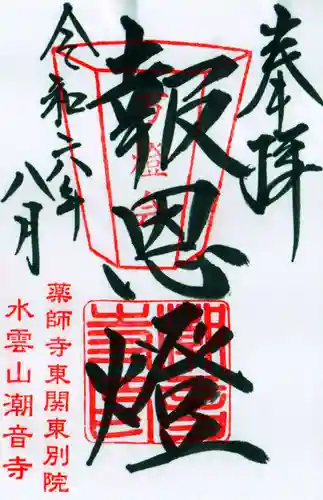 奉拝
報恩燈
令和六年
八月
薬師寺東関東別院
水雲山潮音寺